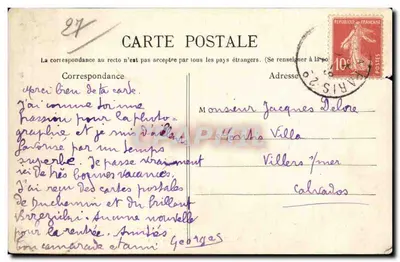 27
CARTE POSTALE
La correspondance au recto n'est pas acceptée par tous les pays étrangers. (Se renseigner à la poste
Correspondance
Adresse
REPUBLIQUE FRANÇAISE
10c
POSTES
PARIS
Merci bien de ta carte.
J'ai comme
passion pour la photo-
graphie et je
favorisé par un temps
superbe. Je passe vraiment
ici de très bonnes vacances.
J'ai reçu des cartes postales
de Duchemin et du brillant
Aucune nouvelle
pour la rentrée. Amitiés
bon camarade et ami
Georges
Monsieur Jacques Delore
Villa
Villers s/mer
Calvados